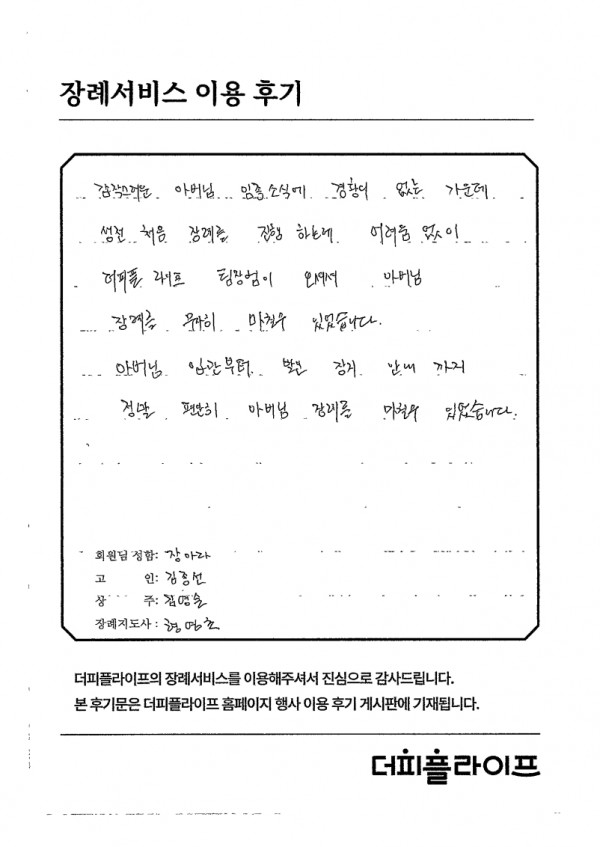 장례서비스 이용 후기
갑작스러운 아버님 임종소식에 경황이 없는 가운데
생전 처음 장례를 진행 하는데 어려움 없이
더피플 라이프 팀장님이 오셔서 아버님
장례를 무사히 마칠수 있었습니다.
아버님 입관부터 발인 장지 안내 까지
정말 편안히 아버님 장례를 마칠수 있었습니다.
회원님 성함: 장아라
고 인: 김흥선
상 주: 김영솔
장례지도사:
더피플라이프의 장례서비스를 이용해주셔서 진심으로 감사드립니다.
본 후기문은 더피플라이프 홈페이지 행사 이용 후기 게시판에 기재됩니다.
더피플라이프